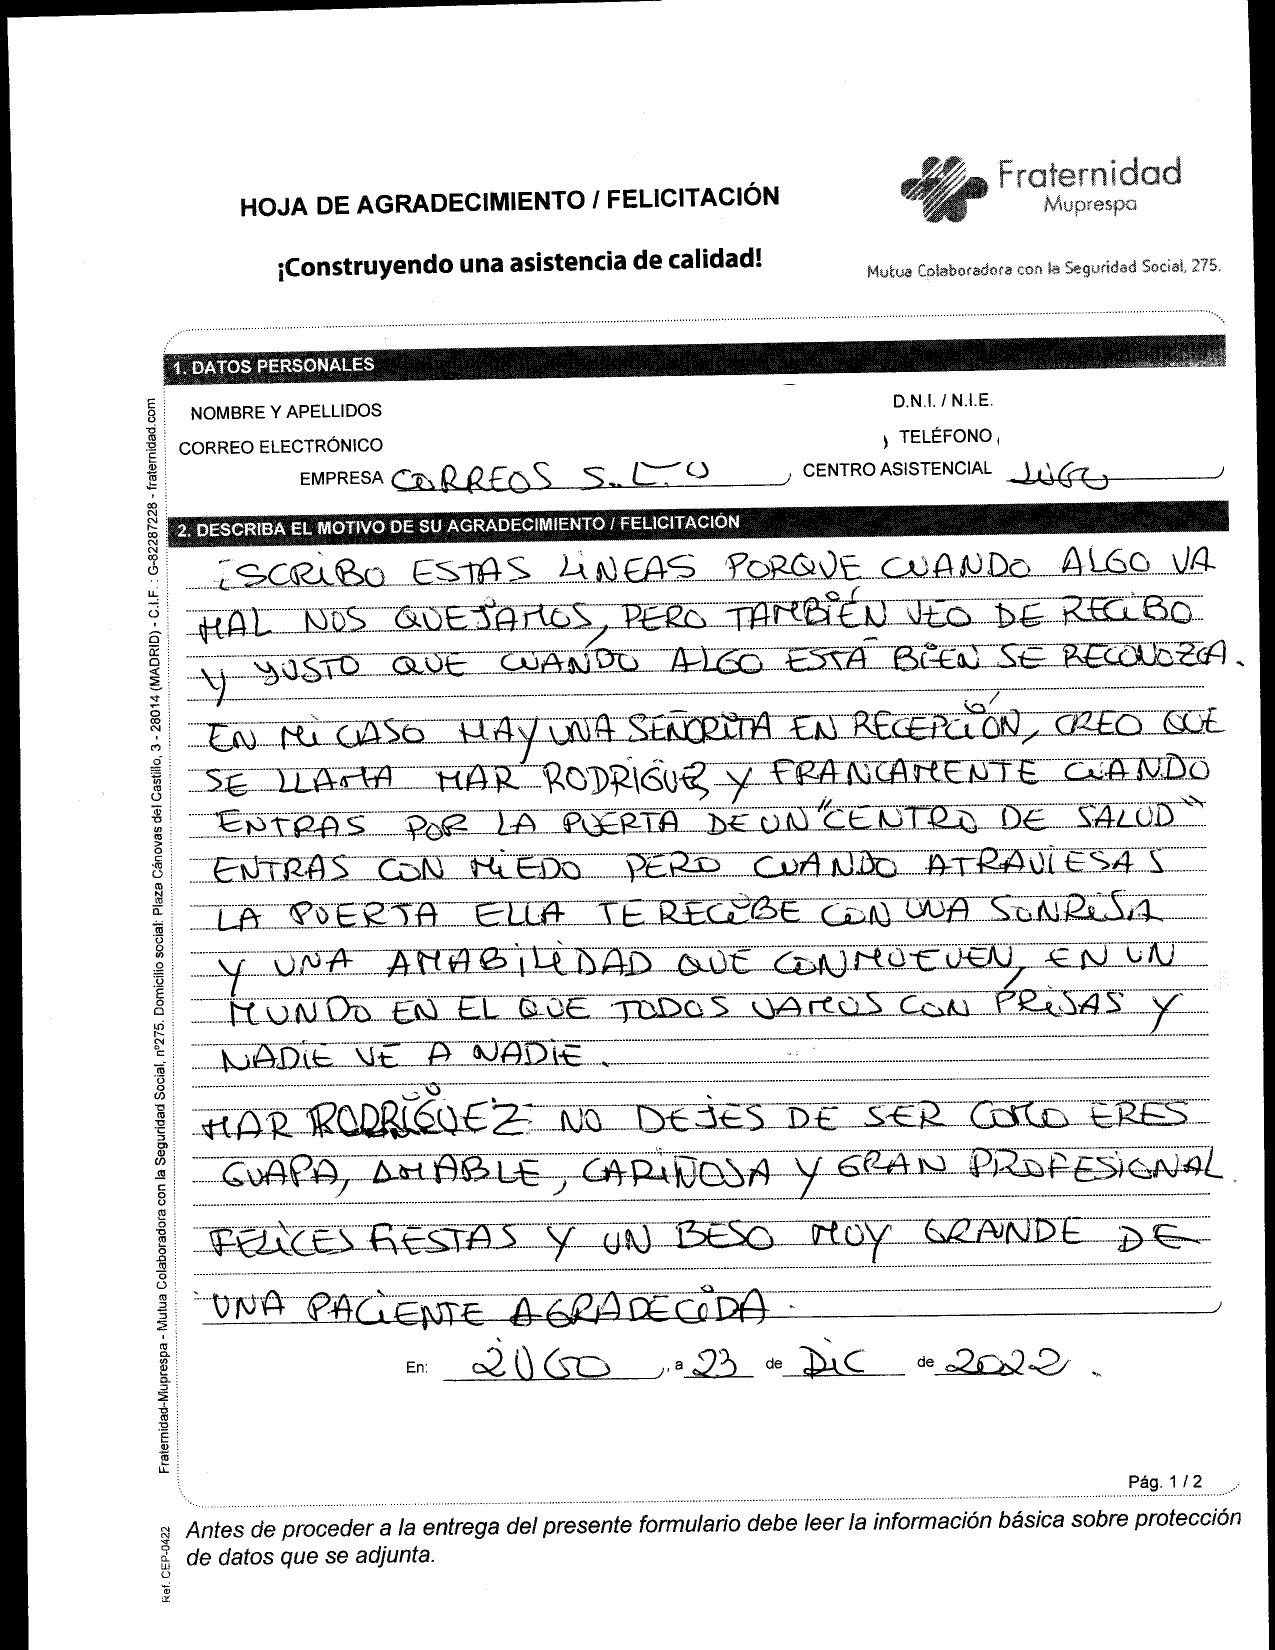 HOJA DE AGRADECIMIENTO / FELICITACIÓN
Fraternidad
Muprespa
¡Construyendo una asistencia de calidad!
Mutua Colaboradora con la Seguridad Social, 275.
1. DATOS PERSONALES
NOMBRE Y APELLIDOS
D.N.I. / N.I.E.
CORREO ELECTRÓNICO
TELÉFONO
EMPRESA CORREOS S.L.U
CENTRO ASISTENCIAL LUGO
2. DESCRIBA EL MOTIVO DE SU AGRADECIMIENTO / FELICITACIÓN
ESCRIBO ESTAS LINEAS PORQUE CUANDO ALGO VA
MAL NOS QUEJAMOS, PERO TAMBIÉN VEO DE RECIBO
Y YUSTO QUE CUANDO ALGO ESTÁ BIEN SE RECONOZCA.
EN MI CASO HAY UNA SEÑORITA EN RECEPCIÓN, CREO QUE
SE LLAMA MAR RODRIGUEZ Y FRANCAMENTE CUANDO
ENTRAS POR LA PUERTA DE UN "CENTRO DE SALUD"
ENTRAS CON MIEDO PERO CUANDO ATRAVIESAS
LA PUERTA ELLA TE RECIBE CON UNA SONRISA
Y UNA AMABILIDAD QUE CONMUEVEN, EN UN
MUNDO EN EL QUE TODOS VAMOS CON PRISAS Y
NADIE VE A NADIE.
MAR RODRÍGUEZ NO DEJES DE SER COMO ERES
GUAPA, AMABLE, CARIÑOSA Y GRAN PROFESIONAL.
FELICES FIESTAS Y UN BESO MUY GRANDE DE
UNA PACIENTE AGRADECIDA.
En: LUGO, a 23 de DIC de 2022.
Pág. 1 / 2
Antes de proceder a la entrega del presente formulario debe leer la información básica sobre protección
de datos que se adjunta.
Fraternidad-Muprespa - Mutua Colaboradora con la Seguridad Social, nº275. Domicilio social: Plaza Cánovas del Castillo, 3 - 28014 (MADRID) - C.I.F. : G-82287228 - fraternidad.com
Ref. CEP-0422